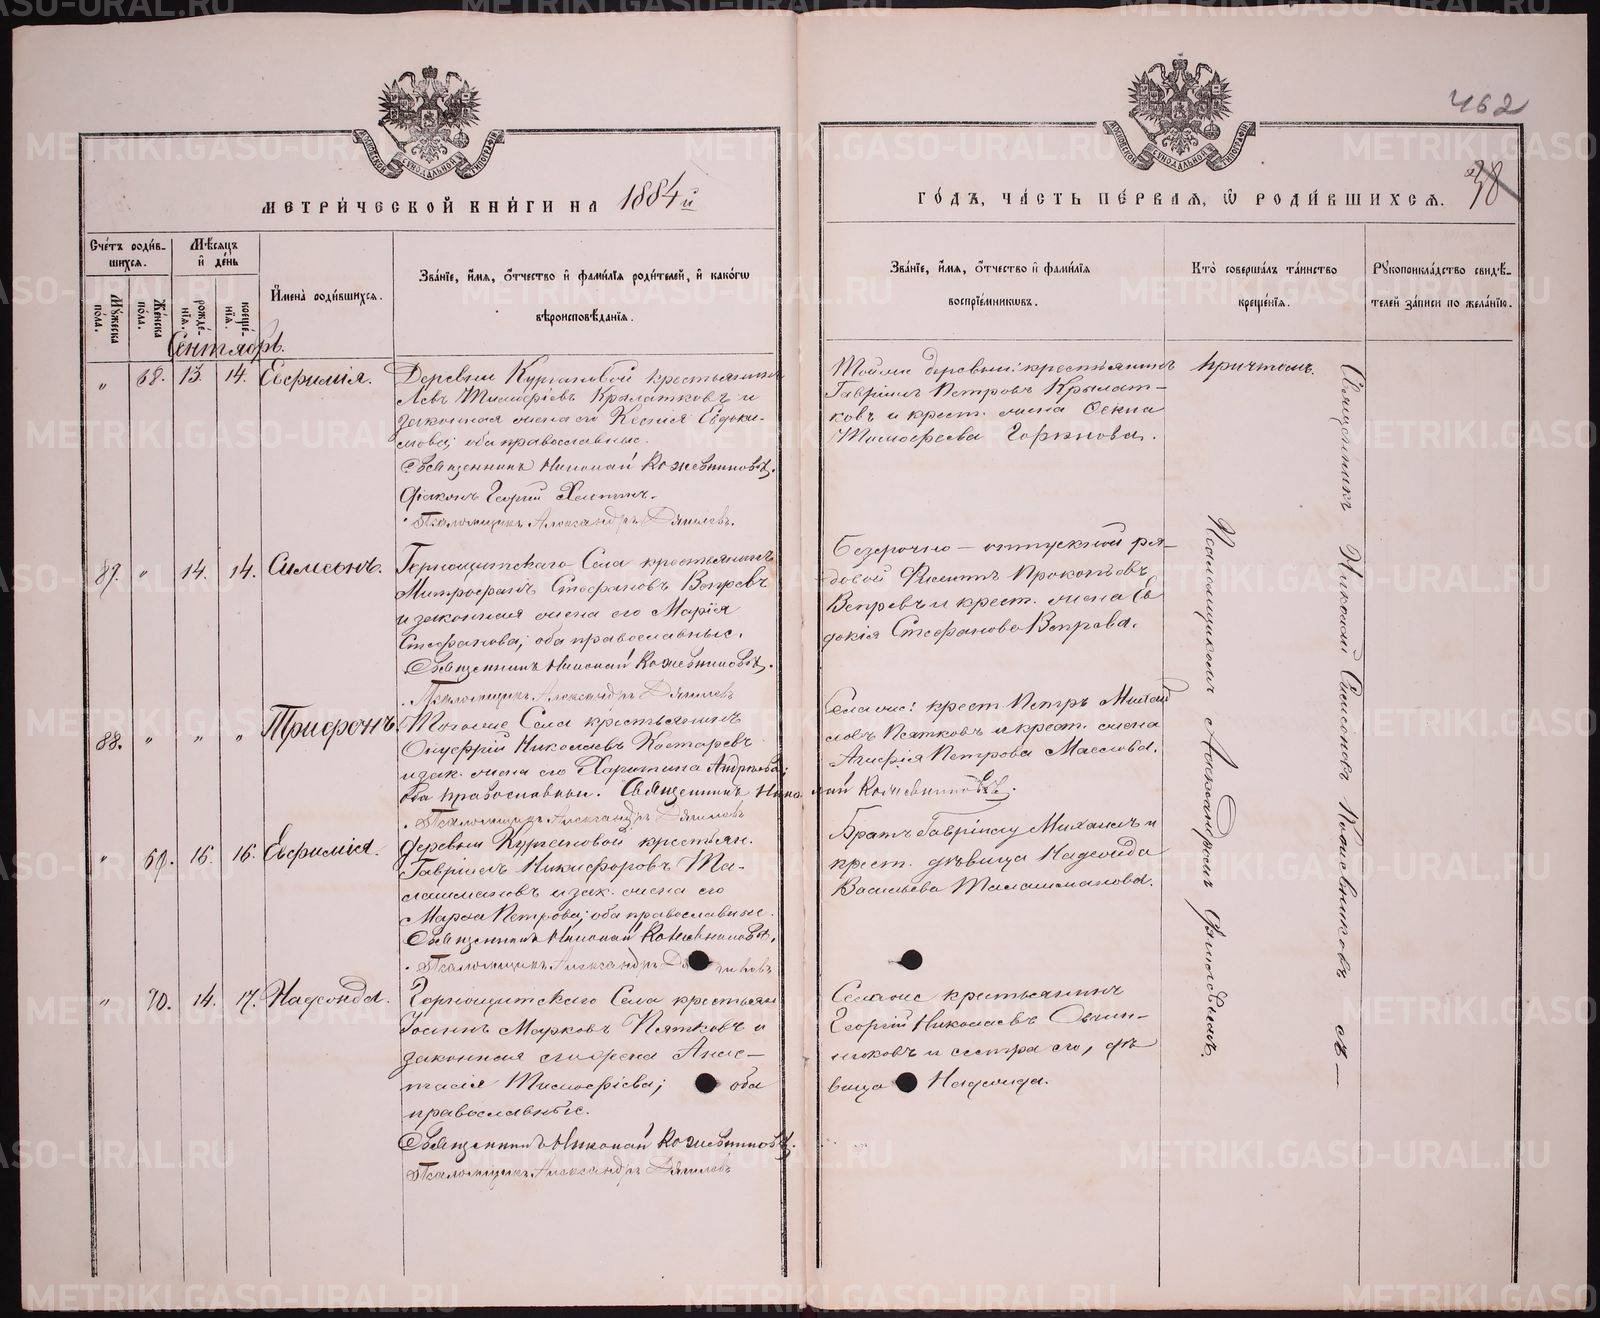 462
38
МЕТРИ́ЧЕСКОЙ КНИ́ГИ НА 1884й
ГО́ДЪ, ЧА́СТЬ ПЕ́РВАЯ, Ѡ РОДИ́ВШИХСЯ.
Сче́тъ роди́в-
шихся.
Мꙋ́жеска по́ла.
Же́нска по́ла.
Мѣ́сяцъ и де́нь
рожде́-нїя.
креще́-нїя.
И҆мена̀ роди́вшихся.
Зва́нїе, и҆́мя, ѻ҆́тчество и҆ фами́лїя роди́телей, и҆ како́гѡ
вѣроисповѣ́данїя.
Зва́нїе, и҆́мя, ѻ҆́тчество и҆ фами́лїя
воспрїе́мникѡвъ.
Кто̀ соверша́лъ та́инство
креще́нїя.
Рꙋкоприкла́дство свидѣ́-
телей за́писи по жела́нїю.
Сентябрь.
„ 68. 13. 14. Евфимія.
Деревни Кургановой крестьянинъ
Левъ Тимофѣевъ Крылатковъ и
законная жена его Ксенія Евдоки-
мова; оба православные.
Священникъ Николай Кожевниковъ.
Діаконъ Георгій
Псаломщикъ Александръ Дягилевъ.
Тойже деревни: крестьянинъ
Гавріилъ Петровъ Крылат-
ковъ и крест. жена
Тимофеева
причтомъ.
87. „ 14. 14. Симеонъ.
Горнощитскаго Села крестьянинъ
Митрофанъ Стефановъ Вепревъ
и законная жена его Марія
Стефанова; оба православные.
Священникъ Николай Кожевниковъ.
Псаломщикъ Александръ Дягилевъ
Безсрочно-отпускной ря-
довой Филиппъ Прокопьевъ
Вепревъ и крест. жена Ев
докія Стефанова Вепрева.
88. „ „ „ Трифонъ.
Тогоже Села крестьянинъ
Онуфрій Николаевъ Костаревъ
и зак. жена его Харитина Андреева;
оба православные. Священникъ Николай Кожевниковъ.
Псаломщикъ Александръ Дягилевъ
Села же: крест. Петръ Михай
ловъ Пятковъ и крест. жена
Агафія Петрова Маслова.
„ 69. 16. 16. Евфимія.
Деревни Кургановой крестьян.
Гавріилъ Никифоровъ Та-
лашмановъ и зак. жена его
Марѳа Петрова; оба православные.
Священникъ Николай Кожевниковъ.
Псаломщикъ Александръ Дягилевъ
Братъ Гавріилу Михаилъ и
крест. дѣвица Надежда
Васильева Талашманова.
„ 70. 14. 17. Надежда.
Горнощитскаго Села крестьян
Іоаннъ Марковъ Пятковъ и
законная его жена Анас-
тасія Тимофѣева; оба
православные.
Священникъ Николай Кожевниковъ.
Псаломщикъ Александръ Дягилевъ
Села же крестьянинъ
Георгій Николаевъ Овчин-
никовъ и сестра его, дѣ
вица Надежда.
Священникъ Николай Симеоновъ Кожевниковъ съ —
Псаломщикомъ Александромъ Дягилевымъ.